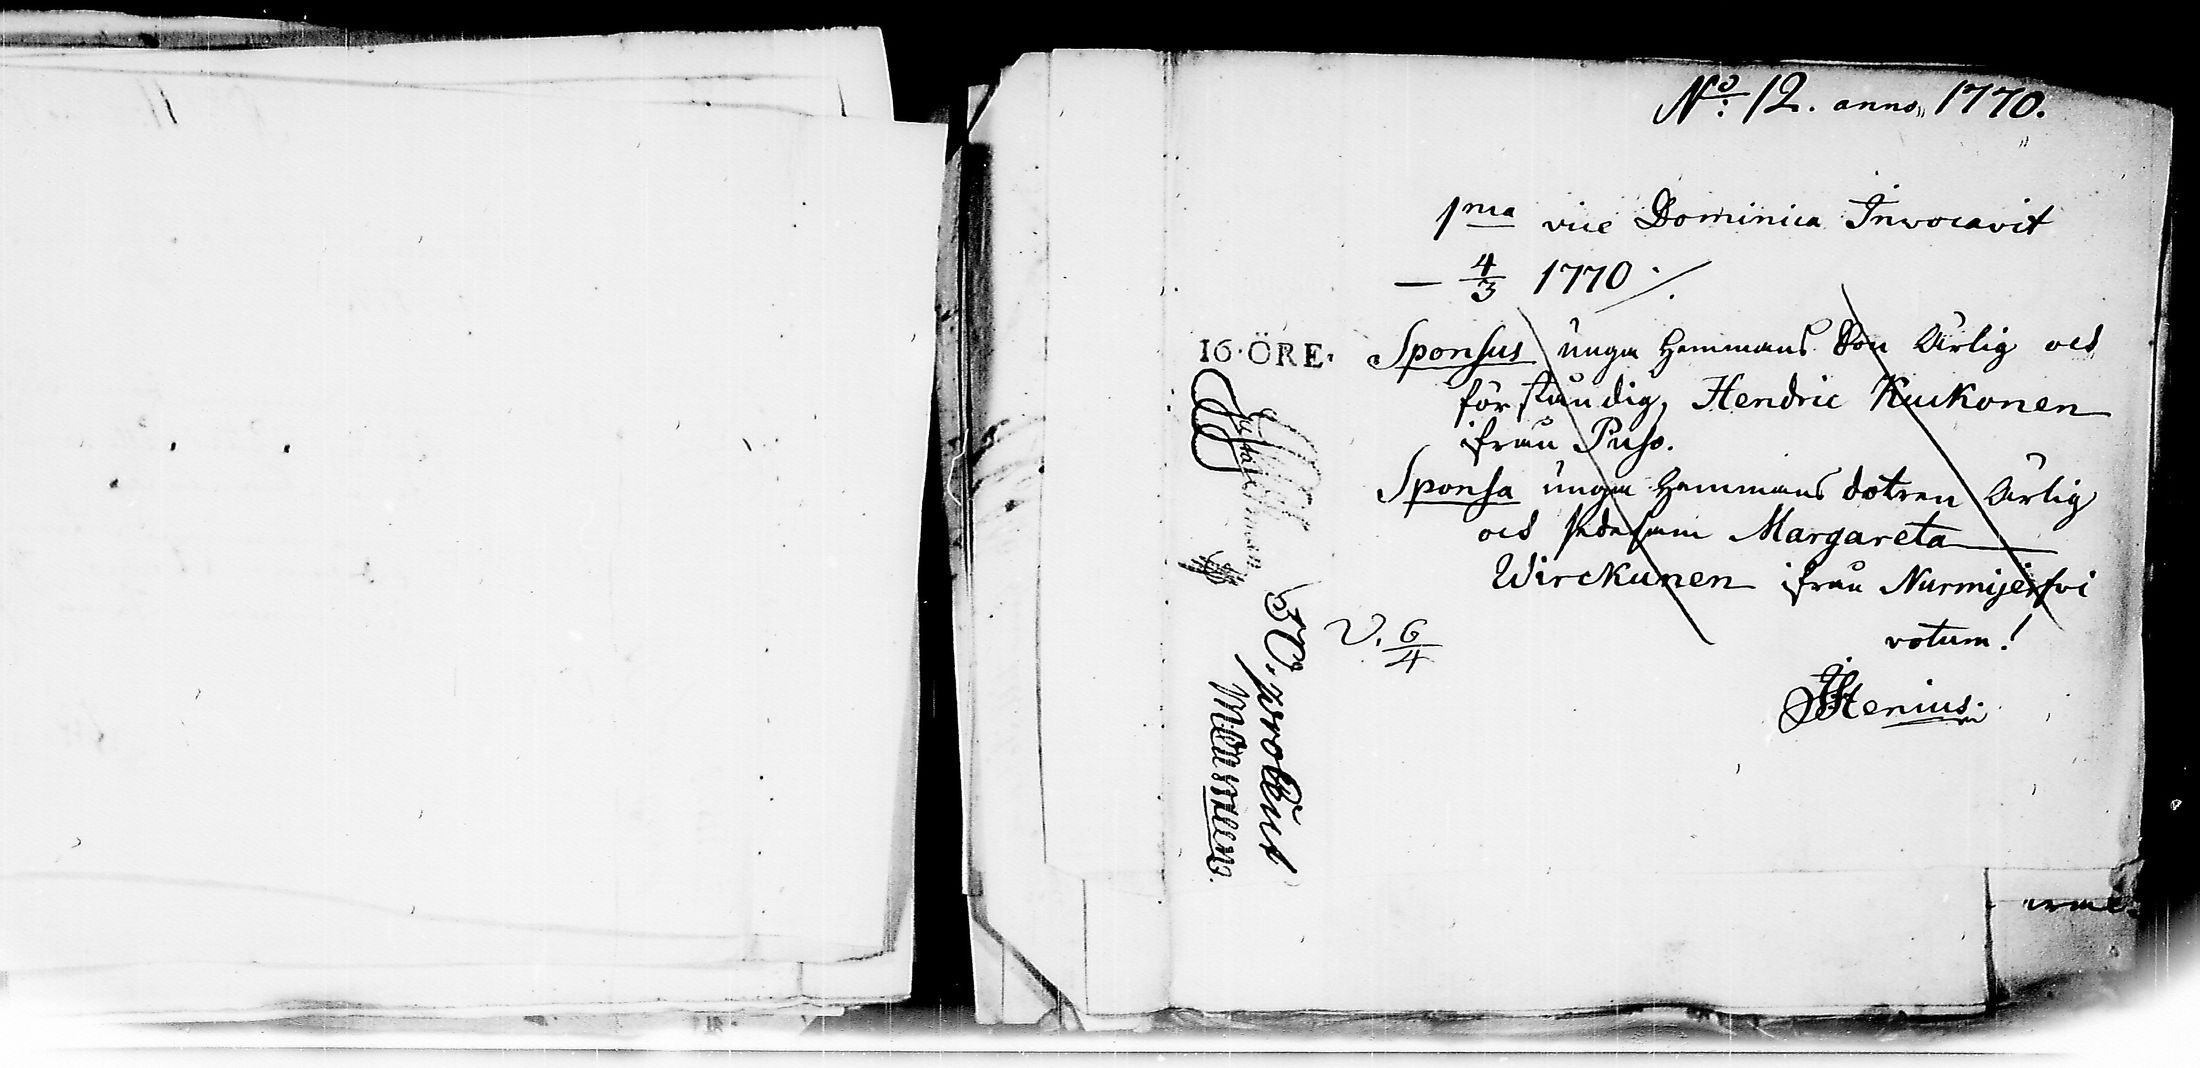 No: 12. anno, 1770.
1ma vice Dominica Invocavit
— 4/3 1770 ./.
16·ÖRE·
Sponsus unga Hemmans Son Ärlig och
förståndig, Hendric Kuckonen
ifrån Puso.
Sponsa unga Hemmans dotren Ärlig
och sedesam Margareta
Wirckunen ifrån Nurmijerfvi
V. 6/4
votum!
JStenius.